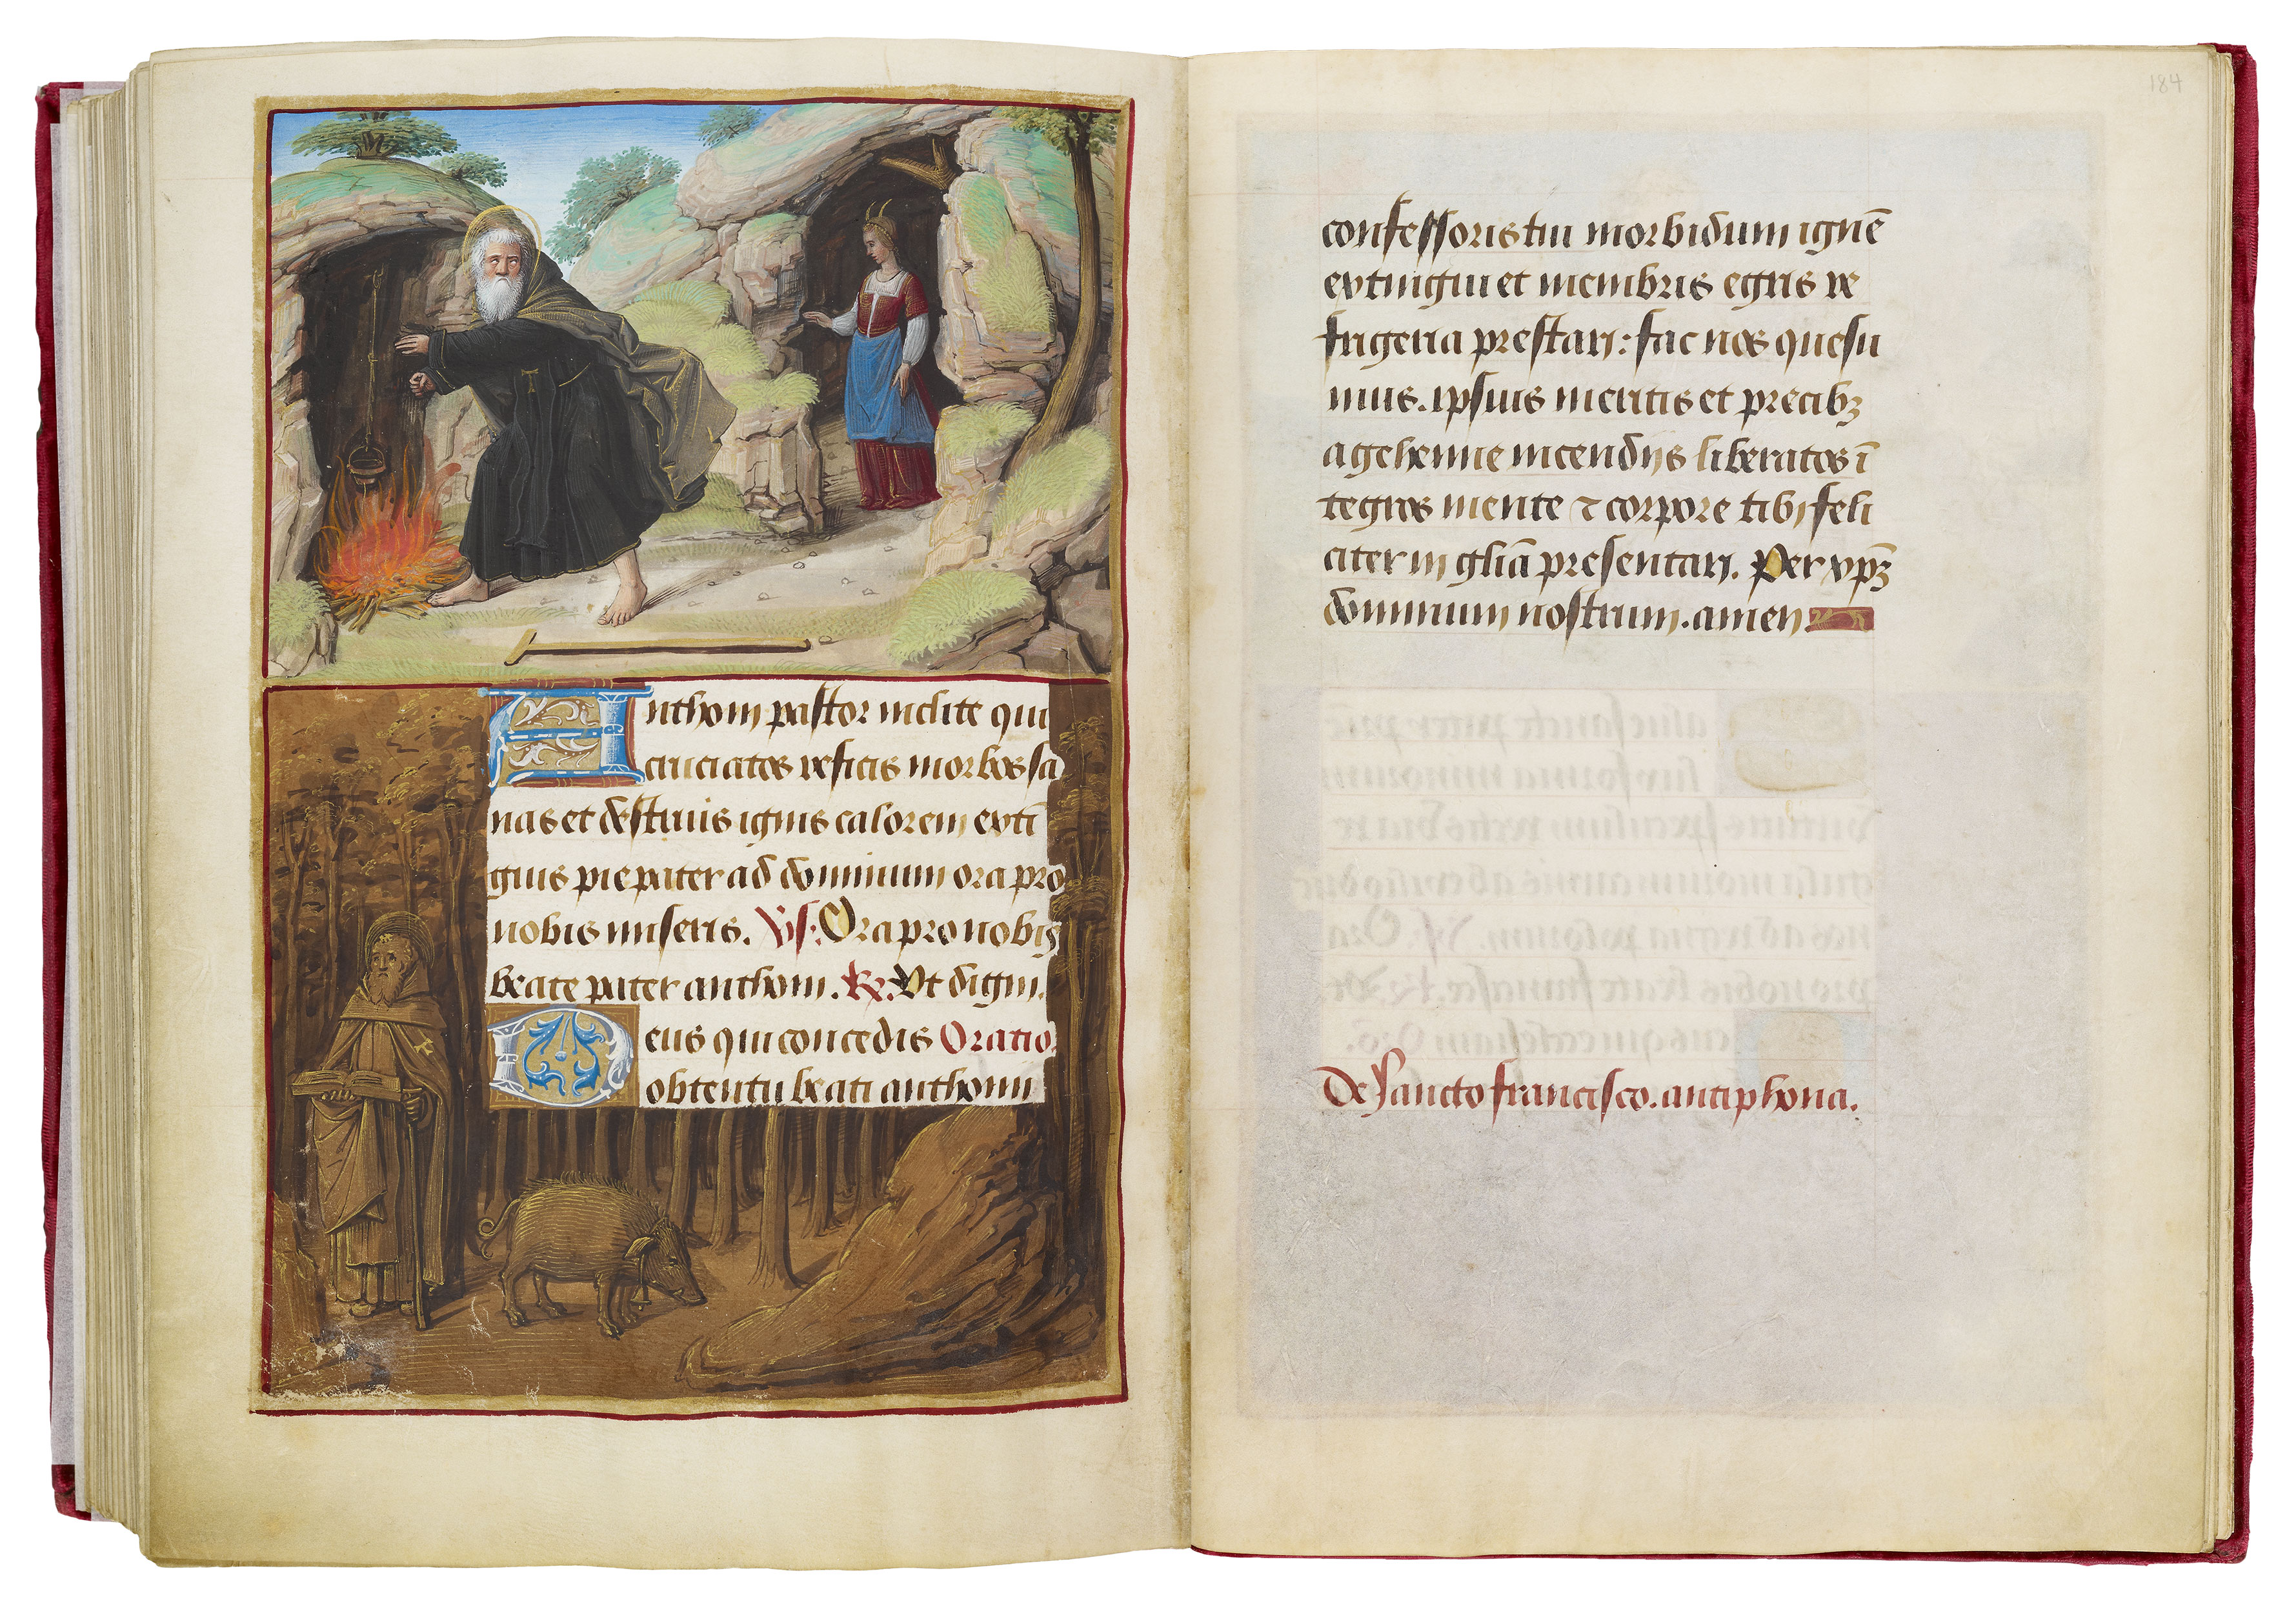 Anthoni pastor inclite qui
cruciatos reficis morbos sa
nas et destruis ignis calorem exti
guis pie pater ad dominum ora pro
nobis miseris. Vs. Ora pro nobis
beate pater anthoni. R. Ut digni.
Deus qui concedis Oratio.
obtentu beati anthonii
184
confessoris tui morbidum ignē
extingui et membris egris re
frigeria prestari: fac nos quesu
mus. ipsius meritis et precibꝫ
a gehenne incendijs liberatos ī
tegros mente ⁊ corpore tibi feli
citer in gliā presentari. Per xpꝫ
dominum nostrum. amen
De sancto francisco. antiphona.